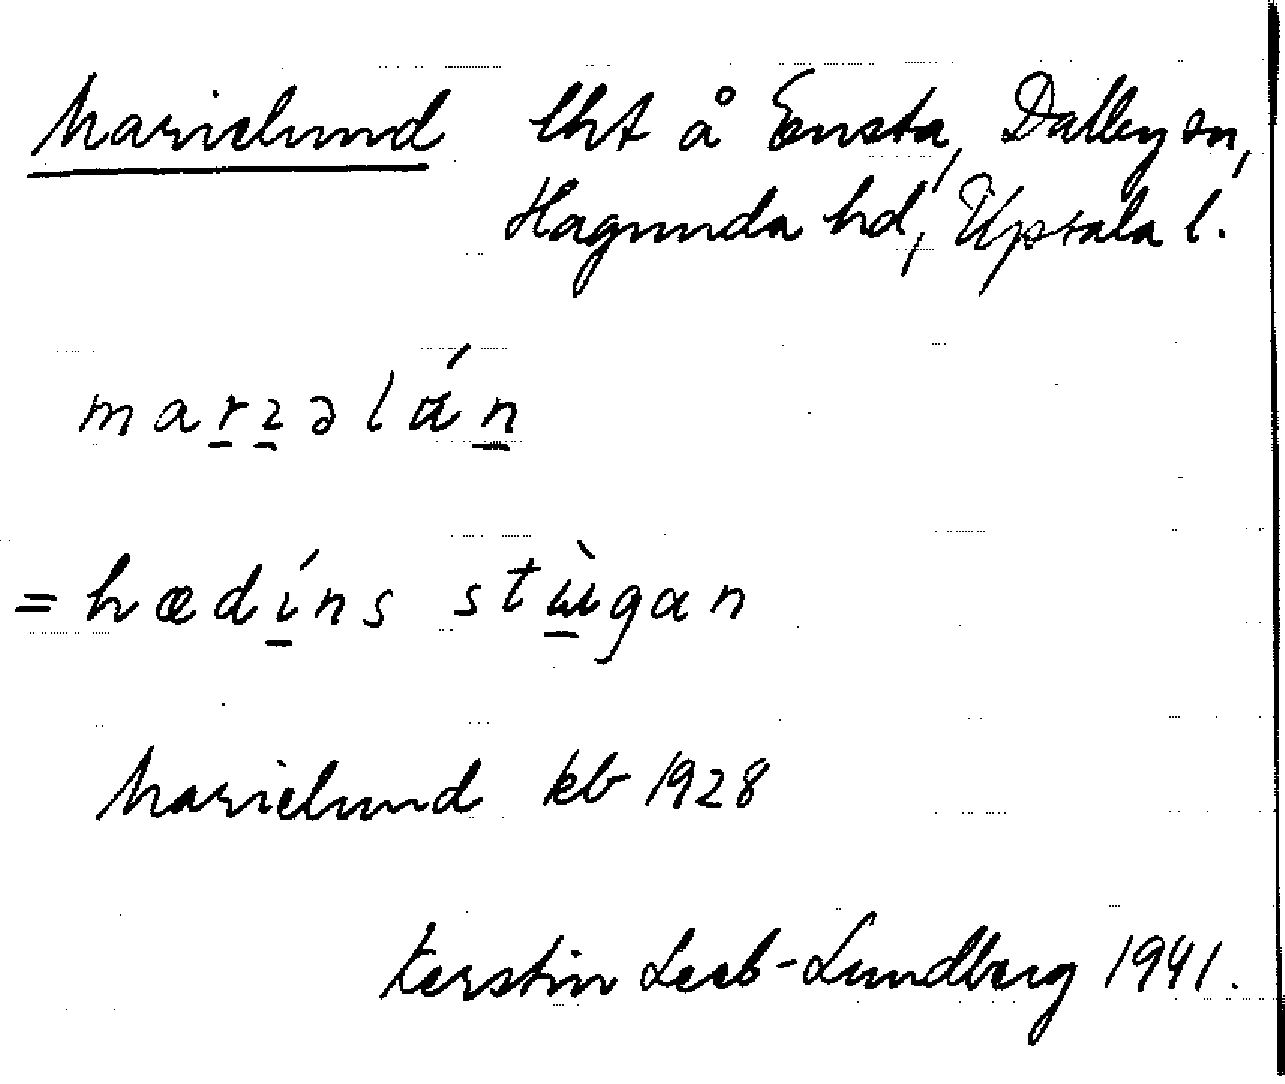 Marielund lht å Ensta, Dalby sn,
Hagunda hd, Upsala l.
marzəlán
= hædíns stùgan
Marielund kb 1928
Kerstin Leeb-Lundberg 1941.